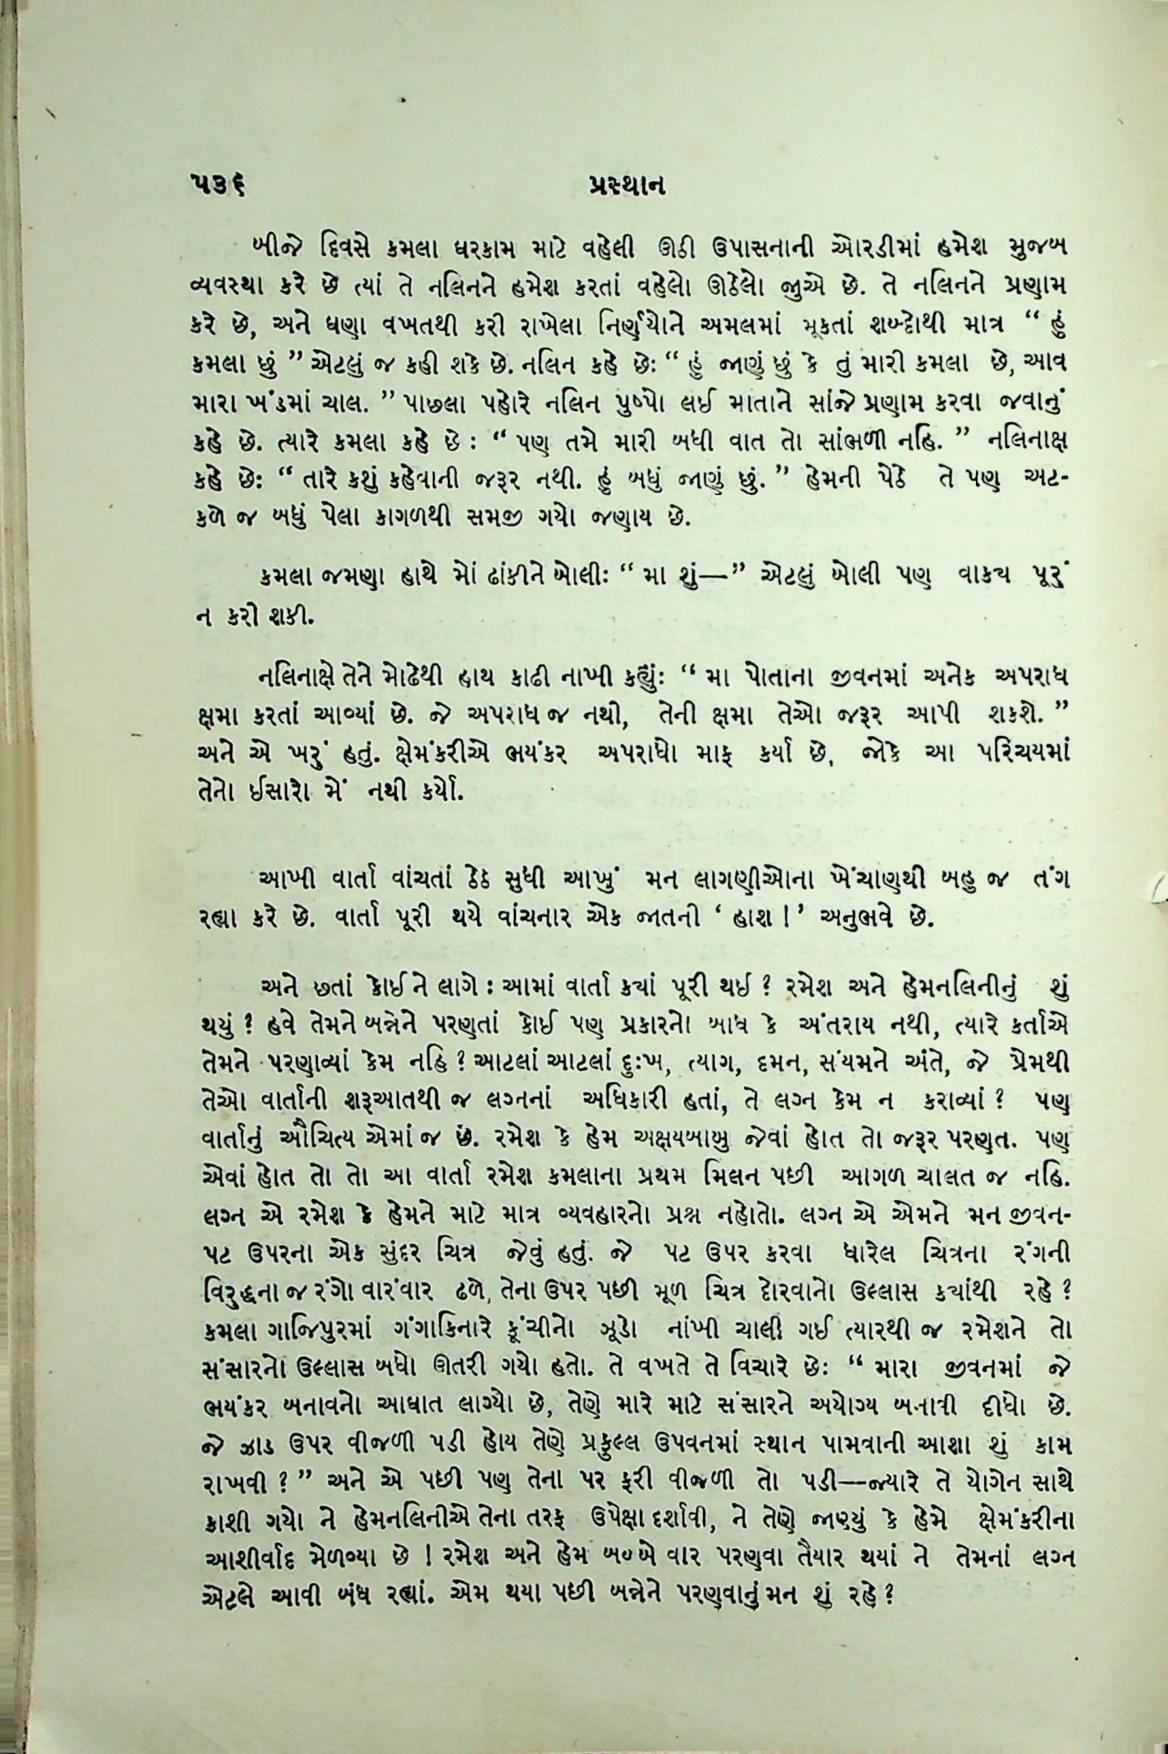 ૫૩૬ પ્રસ્થાન
બીજે દિવસે કમલા ઘરકામ માટે વહેલી ઊઠી ઉપાસનાની ઓરડીમાં હમેશ મુજબ
વ્યવસ્થા કરે છે ત્યાં તે નલિનને હમેશ કરતાં વહેલો ઊઠેલો જુએ છે. તે નલિનને પ્રણામ
કરે છે, અને ઘણા વખતથી કરી રાખેલા નિર્ણયોને અમલમાં મૂકતાં શબ્દોથી માત્ર “ હું
કમલા છું ” એટલું જ કહી શકે છે. નલિન કહે છેઃ “ હું જાણું છું કે તું મારી કમલા છે, આવ
મારા ખંડમાં ચાલ. ” પાછલા પહોરે નલિન પુષ્પો લઈ માતાને સાંજે પ્રણામ કરવા જવાનું
કહે છે. ત્યારે કમલા કહે છે : “ પણ તમે મારી બધી વાત તો સાંભળી નહિ. ” નલિનાક્ષ
કહે છેઃ “ તારે કશું કહેવાની જરૂર નથી. હું બધું જાણું છું. ” હેમની પેઠે તે પણ અટ-
કળે જ બધું પેલા કાગળથી સમજી ગયો જણાય છે.
કમલા જમણા હાથે મોં ઢાંકીને બોલીઃ “ મા શું—” એટલું બોલી પણ વાક્ય પૂરું
ન કરી શકી.
નલિનાક્ષે તેને મોઢેથી હાથ કાઢી નાખી કહ્યુંઃ “ મા પોતાના જીવનમાં અનેક અપરાધ
ક્ષમા કરતાં આવ્યાં છે. જે અપરાધ જ નથી, તેની ક્ષમા તેઓ જરૂર આપી શકશે. ”
અને એ ખરું હતું. ક્ષેમંકરીએ ભયંકર અપરાધો માફ કર્યા છે, જોકે આ પરિચયમાં
તેનો ઈસારો મેં નથી કર્યો.
આખી વાર્તા વાંચતાં ઠેઠ સુધી આખું મન લાગણીઓના ખેંચાણથી બહુ જ તંગ
રહ્યા કરે છે. વાર્તા પૂરી થયે વાંચનાર એક જાતની ‘ હાશ ! ’ અનુભવે છે.
અને છતાં કોઈને લાગે : આમાં વાર્તા ક્યાં પૂરી થઈ ? રમેશ અને હેમનલિનીનું શું
થયું ? હવે તેમને બન્નેને પરણતાં કોઈ પણ પ્રકારનો બાધ કે અંતરાય નથી, ત્યારે કર્તાએ
તેમને પરણાવ્યાં કેમ નહિ ? આટલાં આટલાં દુઃખ, ત્યાગ, દમન, સંયમને અંતે, જે પ્રેમથી
તેઓ વાર્તાની શરૂઆતથી જ લગ્નનાં અધિકારી હતાં, તે લગ્ન કેમ ન કરાવ્યાં ? પણ
વાર્તાનું ઔચિત્ય એમાં જ છે. રમેશ કે હેમ અક્ષયબાબુ જેવાં હોત તો જરૂર પરણત. પણ
એવાં હોત તો તો આ વાર્તા રમેશ કમલાના પ્રથમ મિલન પછી આગળ ચાલત જ નહિ.
લગ્ન એ રમેશ કે હેમને માટે માત્ર વ્યવહારનો પ્રશ્ન નહોતો. લગ્ન એ એમને મન જીવન-
પટ ઉપરના એક સુંદર ચિત્ર જેવું હતું. જે પટ ઉપર કરવા ધારેલ ચિત્રના રંગની
વિરુદ્ધના જ રંગો વારંવાર ઢળે, તેના ઉપર પછી મૂળ ચિત્ર દોરવાનો ઉલ્લાસ ક્યાંથી રહે ?
કમલા ગાજિપુરમાં ગંગાકિનારે કૂંચીનો ઝૂડો નાંખી ચાલી ગઈ ત્યારથી જ રમેશને તો
સંસારનો ઉલ્લાસ બધો ઊતરી ગયો હતો. તે વખતે તે વિચારે છેઃ “ મારા જીવનમાં જે
ભયંકર બનાવનો આઘાત લાગ્યો છે, તેણે મારે માટે સંસારને અયોગ્ય બનાવી દીધો છે.
જે ઝાડ ઉપર વીજળી પડી હોય તેણે પ્રફુલ્લ ઉપવનમાં સ્થાન પામવાની આશા શું કામ
રાખવી ? ” અને એ પછી પણ તેના પર ફરી વીજળી તો પડી—જ્યારે તે યોગેન સાથે
કાશી ગયો ને હેમનલિનીએ તેના તરફ ઉપેક્ષા દર્શાવી, ને તેણે જાણ્યું કે હેમે ક્ષેમંકરીના
આશીર્વાદ મેળવ્યા છે ! રમેશ અને હેમ બબ્બે વાર પરણવા તૈયાર થયાં ને તેમનાં લગ્ન
એટલે આવી બંધ રહ્યાં. એમ થયા પછી બન્નેને પરણવાનું મન શું રહે ?